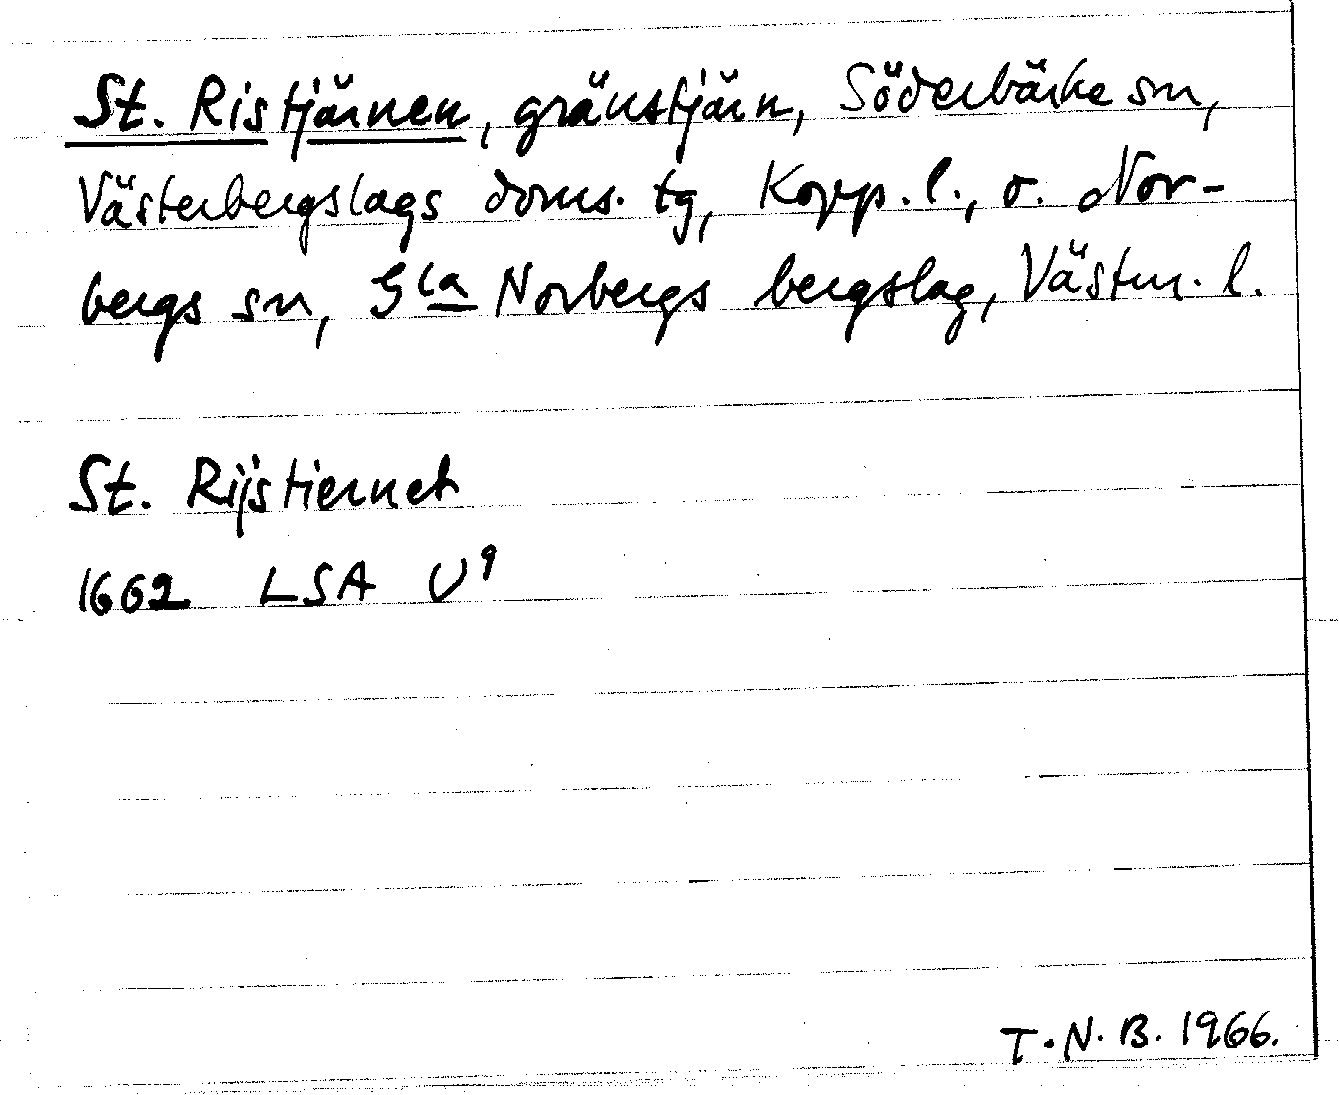 St. Ristjärnen, gränstjärn, Söderbärke sn,
Västerbergslags doms. tg, Kopp. l., o. Nor-
bergs sn, Gla Norbergs bergslag, Västm. l.
St. Rijstiernet
1662 LSA U9
T. N. B. 1966.